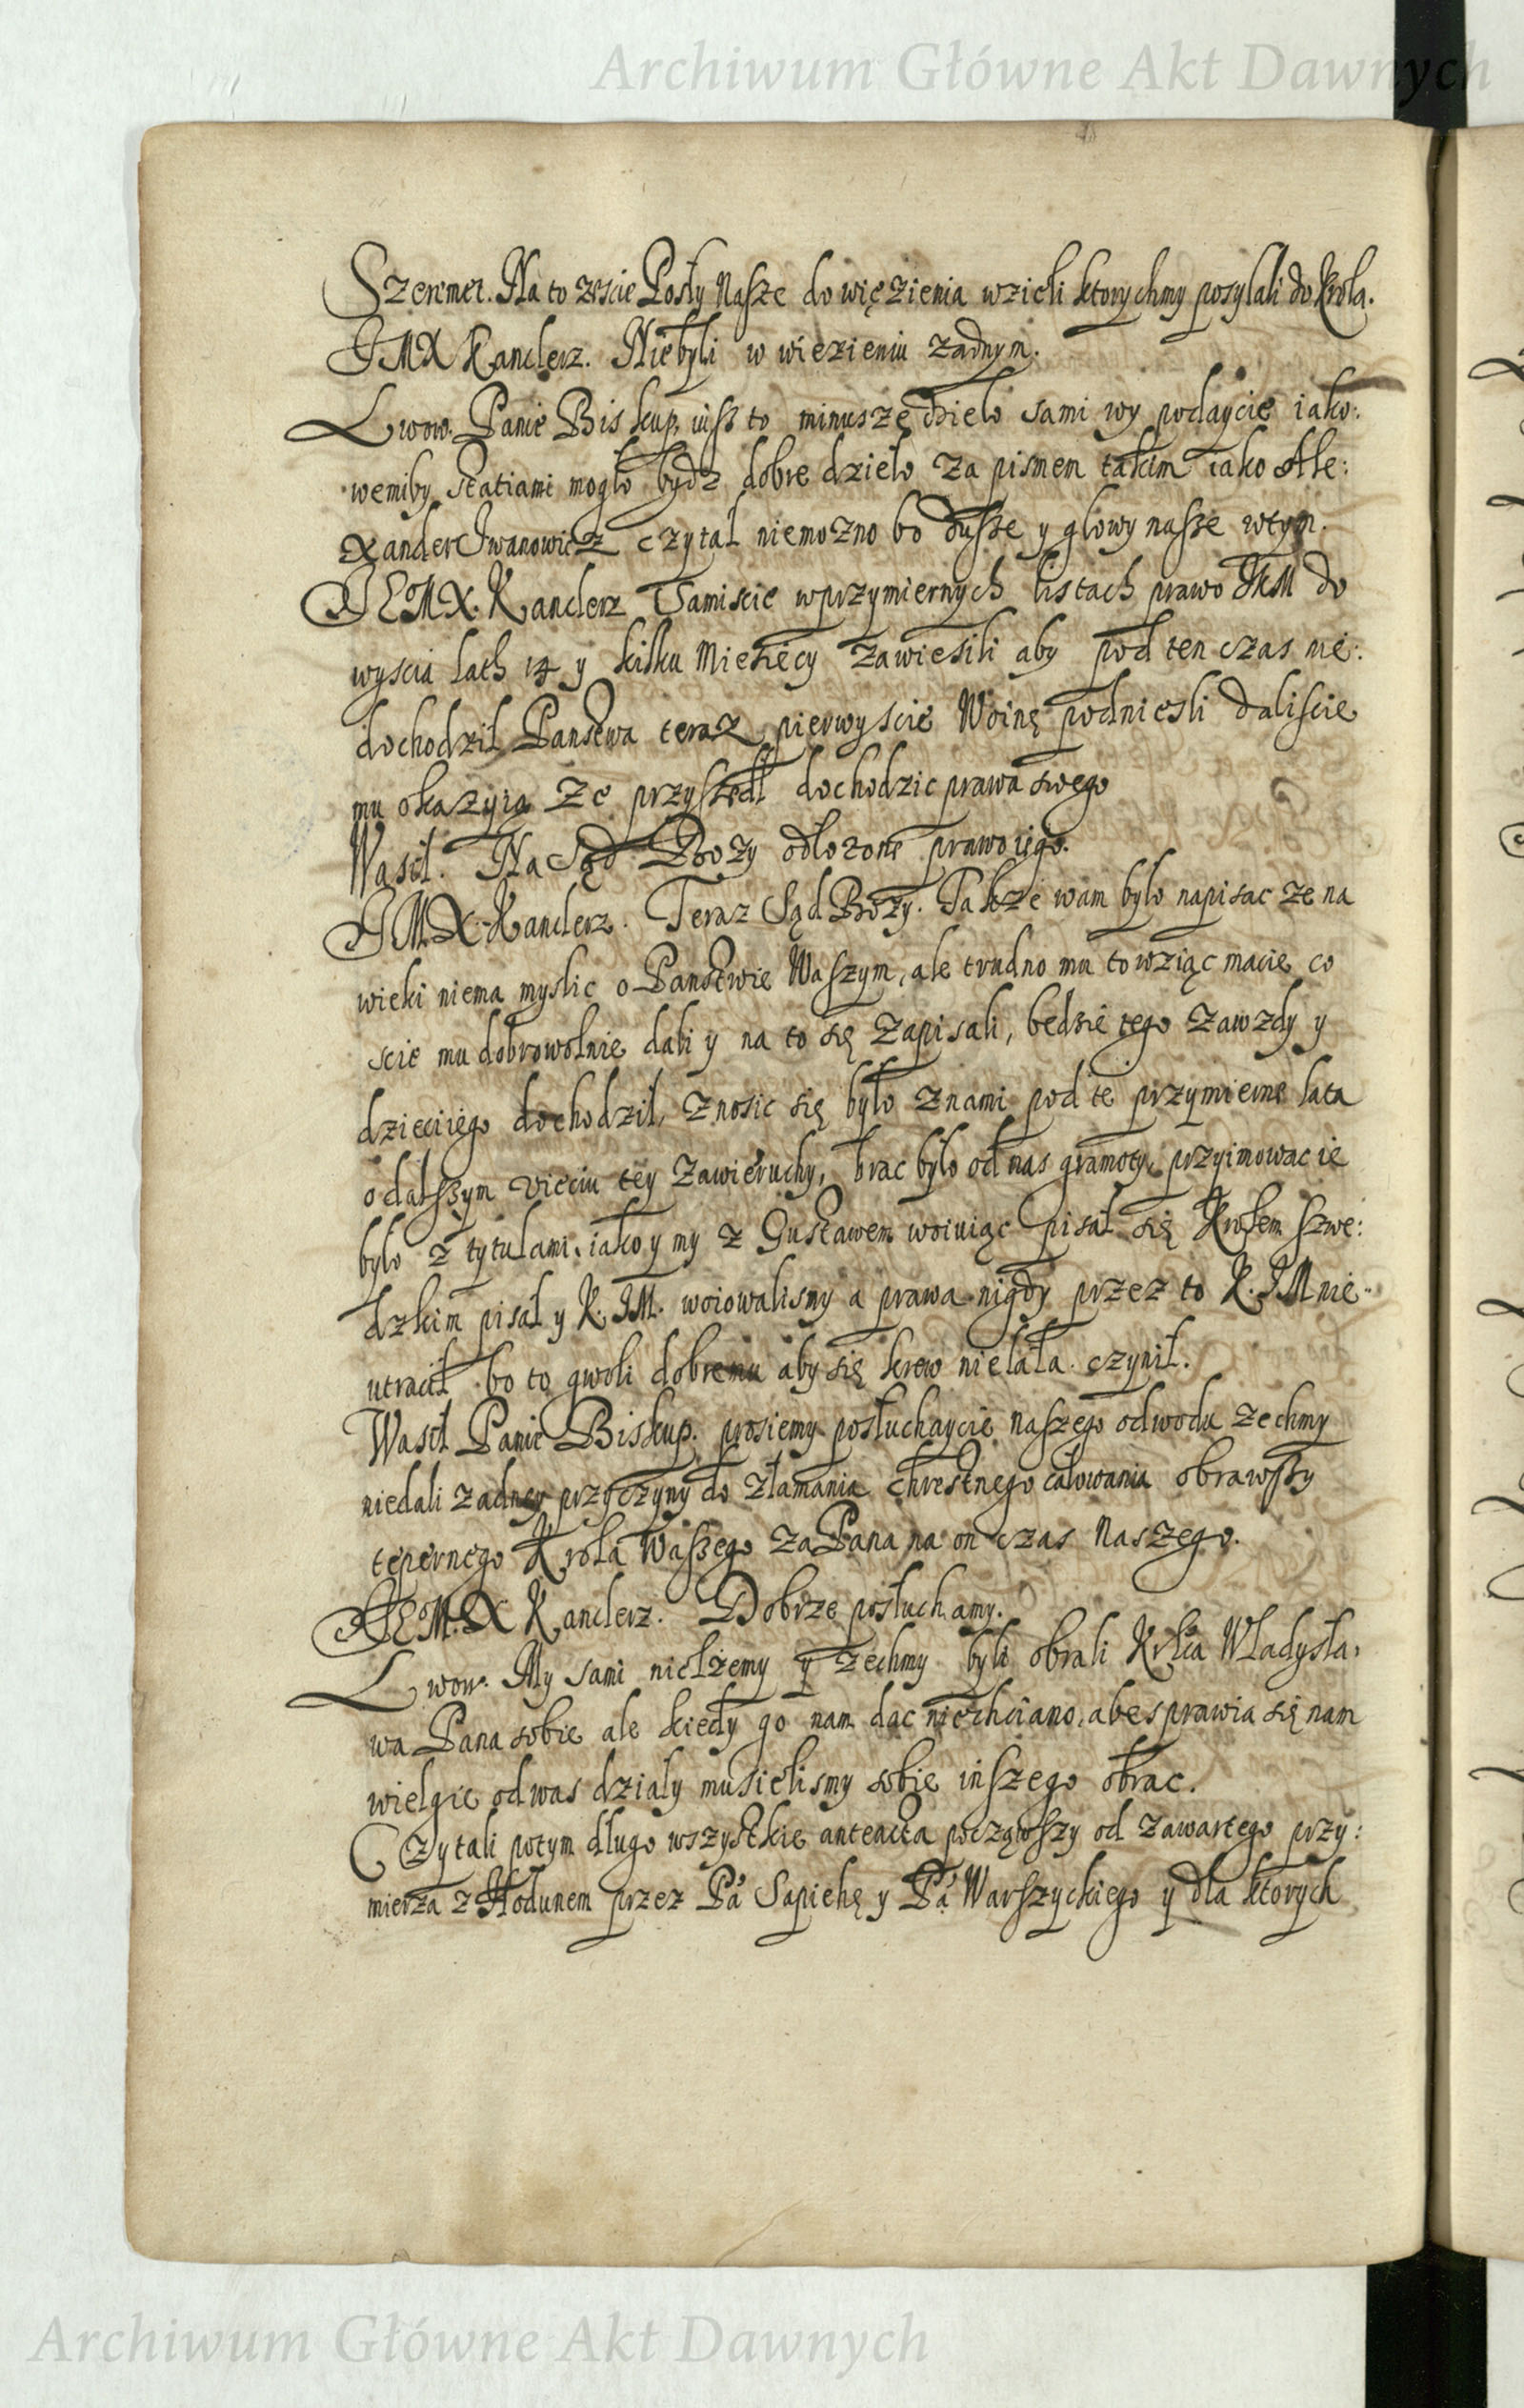 Archiwum Główne Akt Dawnych
Szeremet. Na to zescie Posły Nasze do więzienia wzieli ktorychmy posylali do Krola.
JMX Kanclerz. Niebyli w wiezieniu zadnym.
Lwow. Panie Biskup, iusz to minuszę dzieło sami wy podaycie iako:
wemiby statiami mogło bydz dobre dzieło za pismem takim iako Ale:
xander Iwanowicz czytał niemozno bo dusze y glowy nasze wtym.
JEMX. Kanclerz Samiscie wprzymiernych listach prawo JKM do
wyscia lath 14 y kilku Miesiecy zawiesili aby pod ten czas nie:
dochodził Panstwa teraz pierwyscie Woinę podniesli daliscie
mu okazyią ze przyszedł dochodzic prawa swego
Wasil. Na Sąd Bozy odłozone prawo iego.
JMX Kanclerz. Teraz Sąd Bozy. Takze wam było napisac ze na
wieki niema myslic o Panstwie Waszym, ale trudno mu to wziąc macie co
scie mu dobrowolnie dali y na to się zapisali, bedzie tego zawzdy y
dzieci iego dochodził, znosic się było znami pod te przymierne lata
o dalszym vieciu tey zawieruchy, brac było od nas gramoty, przyimowac ie
było z tytulami, iako y my z Gustawem woiuiąc pisał się Krolem szwe:
dzkim pisał y K. JM. woiowalismy a prawa nigdy przez to K. JM nie
utracił bo to gwoli dobremu aby się krew nielała czynił.
Wasil Panie Biskup. prosiemy posłuchaycie naszego odwodu zechmy
niedali zadney przyczyny do złamania chrestnego całowania obrawszy
tepernego Krola Waszego za Pana na on czas Naszego.
JEM.X Kanclerz. Dobrze posłuchamy.
Lwow. My sami nielżemy y zechmy byli obrali Krlca Władysła:
wa Pana sobie ale kiedy go nam dac niechciano, a besprawia się nam
wielgie od was działy musielismy sobie inszego obrac.
Czytali potym długo wszystkie anteacta począwszy od zawartego przy:
mierza z Hodunem przez Pa Sapiehę y Pa Warszyckiego y dla ktorych
Archiwum Główne Akt Dawnych